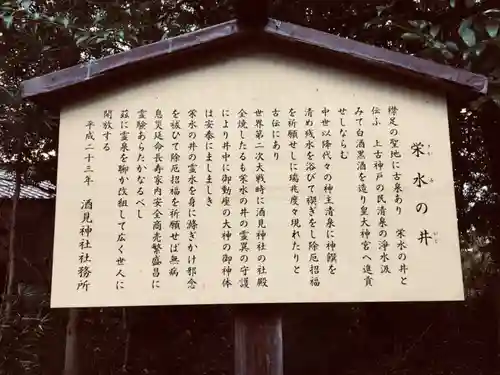 栄水の井
さかみ いど
襟足の聖地に古泉あり 栄水の井と
伝ふ 上古神戸の民清泉の浄水汲
みて白酒黒酒を造り皇太神宮へ進貢
せしならむ
中世以降代々の神主清泉に神饌を
清め残水を浴びて禊ぎをし除厄招福
を祈願せしに瑞兆度々現れたりと
古伝にあり
世界第二次大戦時に酒見神社の社殿
全焼したるも栄水の井の霊異の守護
により井中に御動座の大神の御神体
は安泰にましましき
栄水の井の霊水を身に滌ぎかけ邪念
を祓ひて除厄招福を祈願せば無病
息災延命長寿家内安全商売繁盛に
霊験あらたかなるべし
茲に霊泉を聊か改祖して広く世人に
開放する
平成二十三年 酒見神社社務所